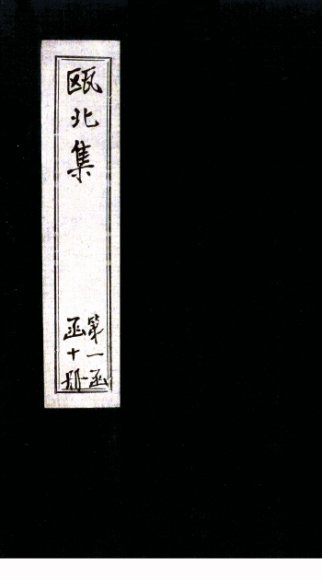 瓯北集
第一函
函十册